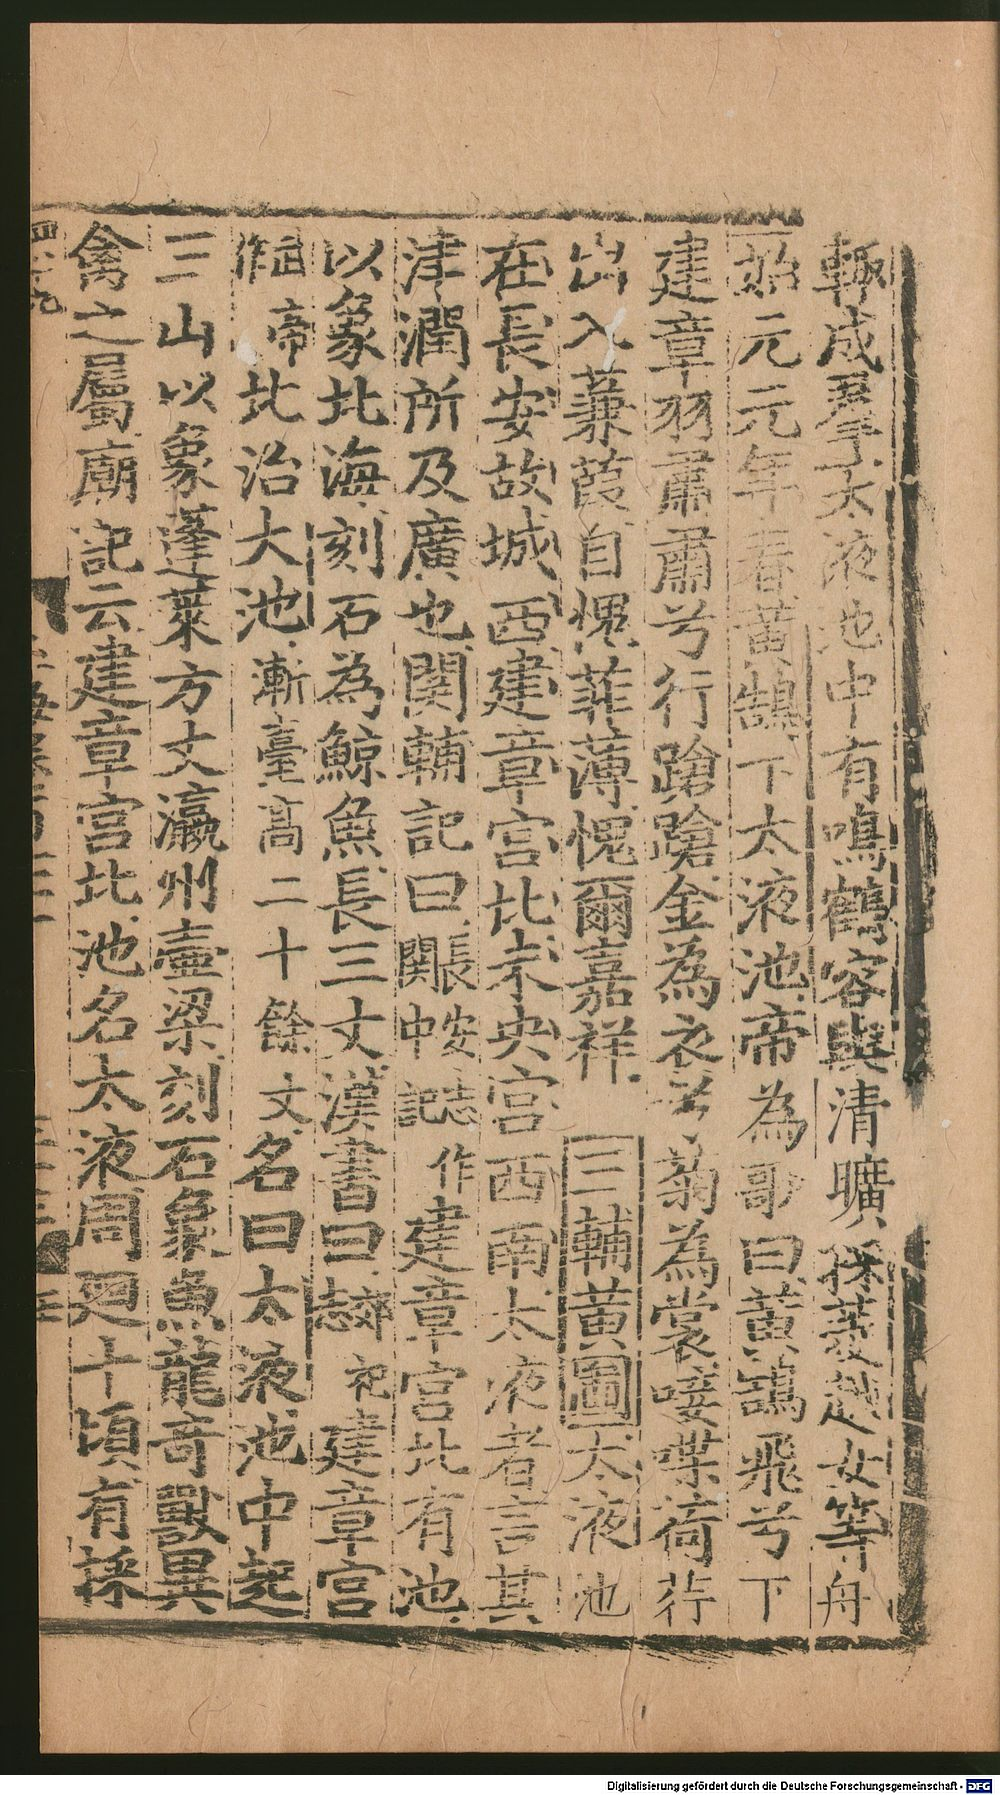 輒成羣太液池中有鳴鶴容與清曠採菱越女等舟
始元元年春黃鵠下太液池帝為歌曰黃鵠飛兮下
建章羽肅肅兮行蹌蹌金為衣兮菊為裳唼喋荷荇
出入蒹葭自愧菲薄愧爾嘉祥 三輔黃圖太液池
在長安故城西建章宮北未央宮西南太液者言其
津潤所及廣也關輔記曰長安志關中記作建章宮北有池
以象北海刻石為鯨魚長三丈漢書曰越祀建章宮
武帝作北治大池漸臺高二十餘丈名曰太液池中起
三山以象蓬萊方丈瀛州壺梁刻石象魚龍奇獸異
禽之屬廟記云建章宮北池名太液周廻十頃有採
Digitalisierung gefördert durch die Deutsche Forschungsgemeinschaft - DFG